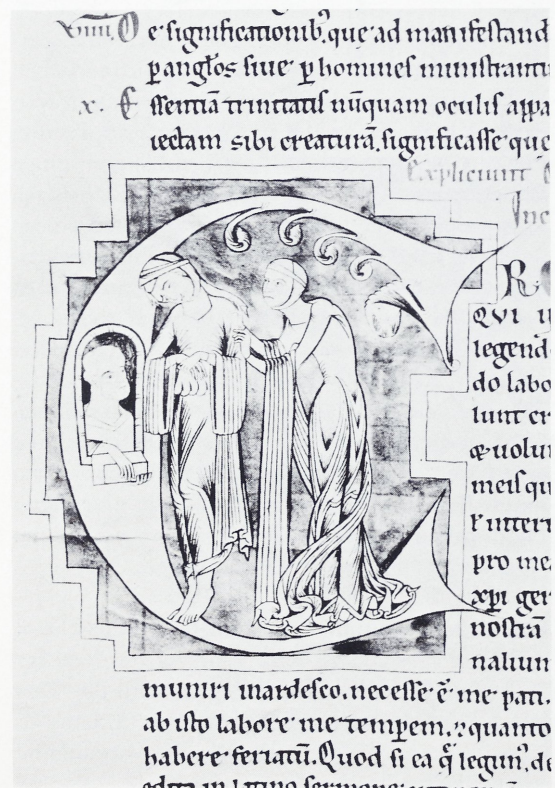 viiii. De significationib; que ad manifestand
p angl̄os siue p homines ministrantr
x. Essentiā trinitatis nūquam oculis appa
iectam sibi creaturā. significasse que
Expliciunt
Inc
R
QVI
legend
do labo
lunt er
æ uolu
meis qu
pro me
xp̄i ger
nostrā
nalium
muniri inardesco. necesse ē me pati.
ab isto labore me temperem. quanto
habere feriatū. Quod si ea q̄ legim; de
edita in latino sermone